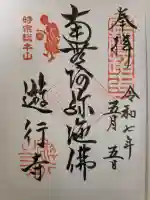 奉拝
令和七年
五月五日
南無阿弥陀佛
遊行寺
時宗総本山